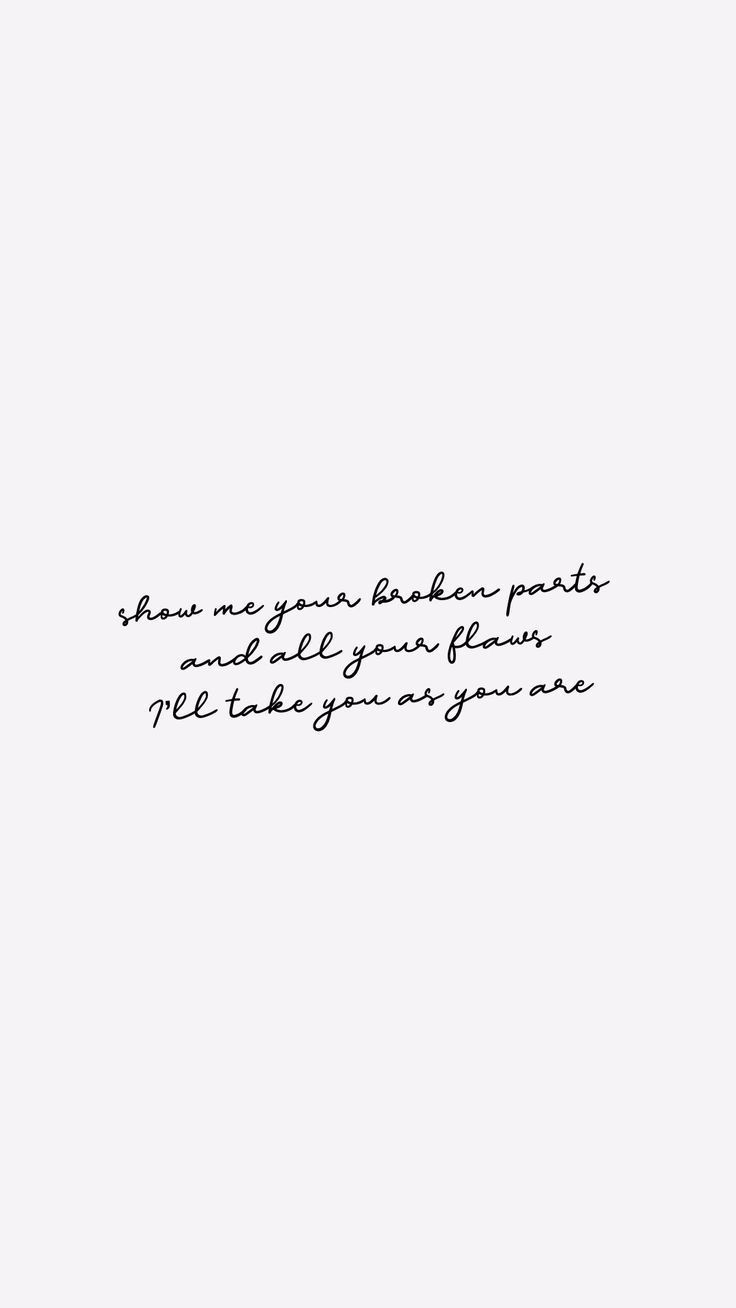 show me your broken parts
and all your flaws
I'll take you as you are